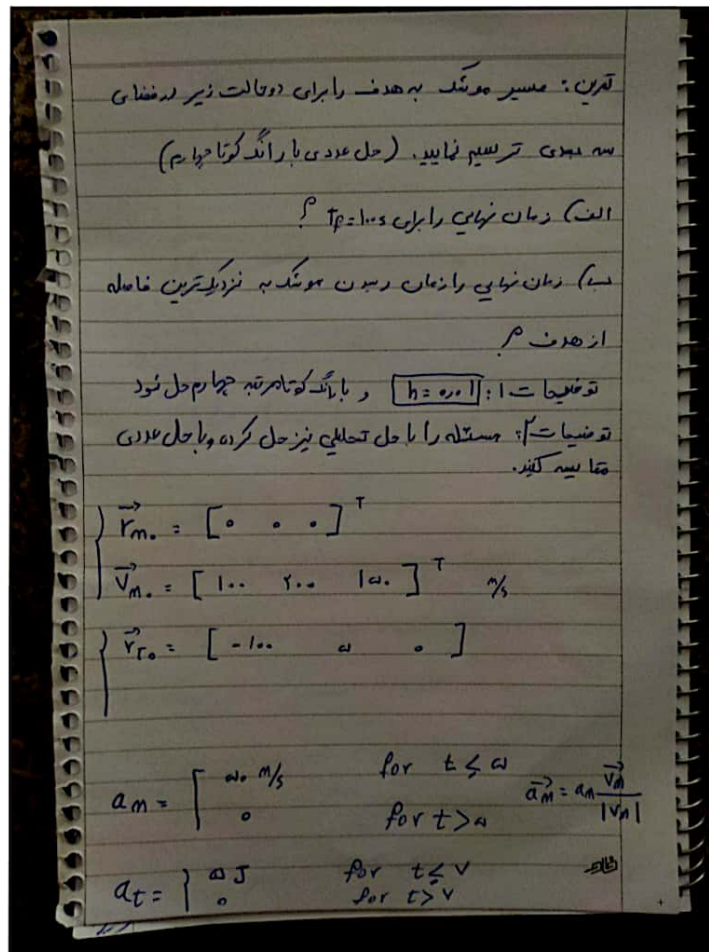 تمرین: مسیر موشک به هدف را برای دو حالت زیر در فضای
سه بعدی ترسیم نمایید. (حل عددی با رانگ کوتا چهارم)
الف) زمان نهایی را برای tf=۱۰۰s ؟
ب) زمان نهایی را زمان رسیدن موشک به نزدیکترین فاصله
از هدف ؟
توضیحات ۱: h=۰٫۰۱ و با رانگ کوتا مرتبه چهارم حل شود
توضیحات ۲: مسئله را با حل تحلیلی نیز حل کرده و با حل عددی
مقایسه کنید.
r⃗m₀ = [۰ ۰ ۰]ᵀ
V⃗m₀ = [۱۰۰ ۲۰۰ ۱۵۰]ᵀ m/s
r⃗T₀ = [-۱۰۰ ۵ ۰]
am = { ۵۰ m/s for t ≤ ۵ a⃗m = am V⃗m / |Vm|
۰ for t > ۵
at = { ۵ J for t ≤ ۷
۰ for t > ۷